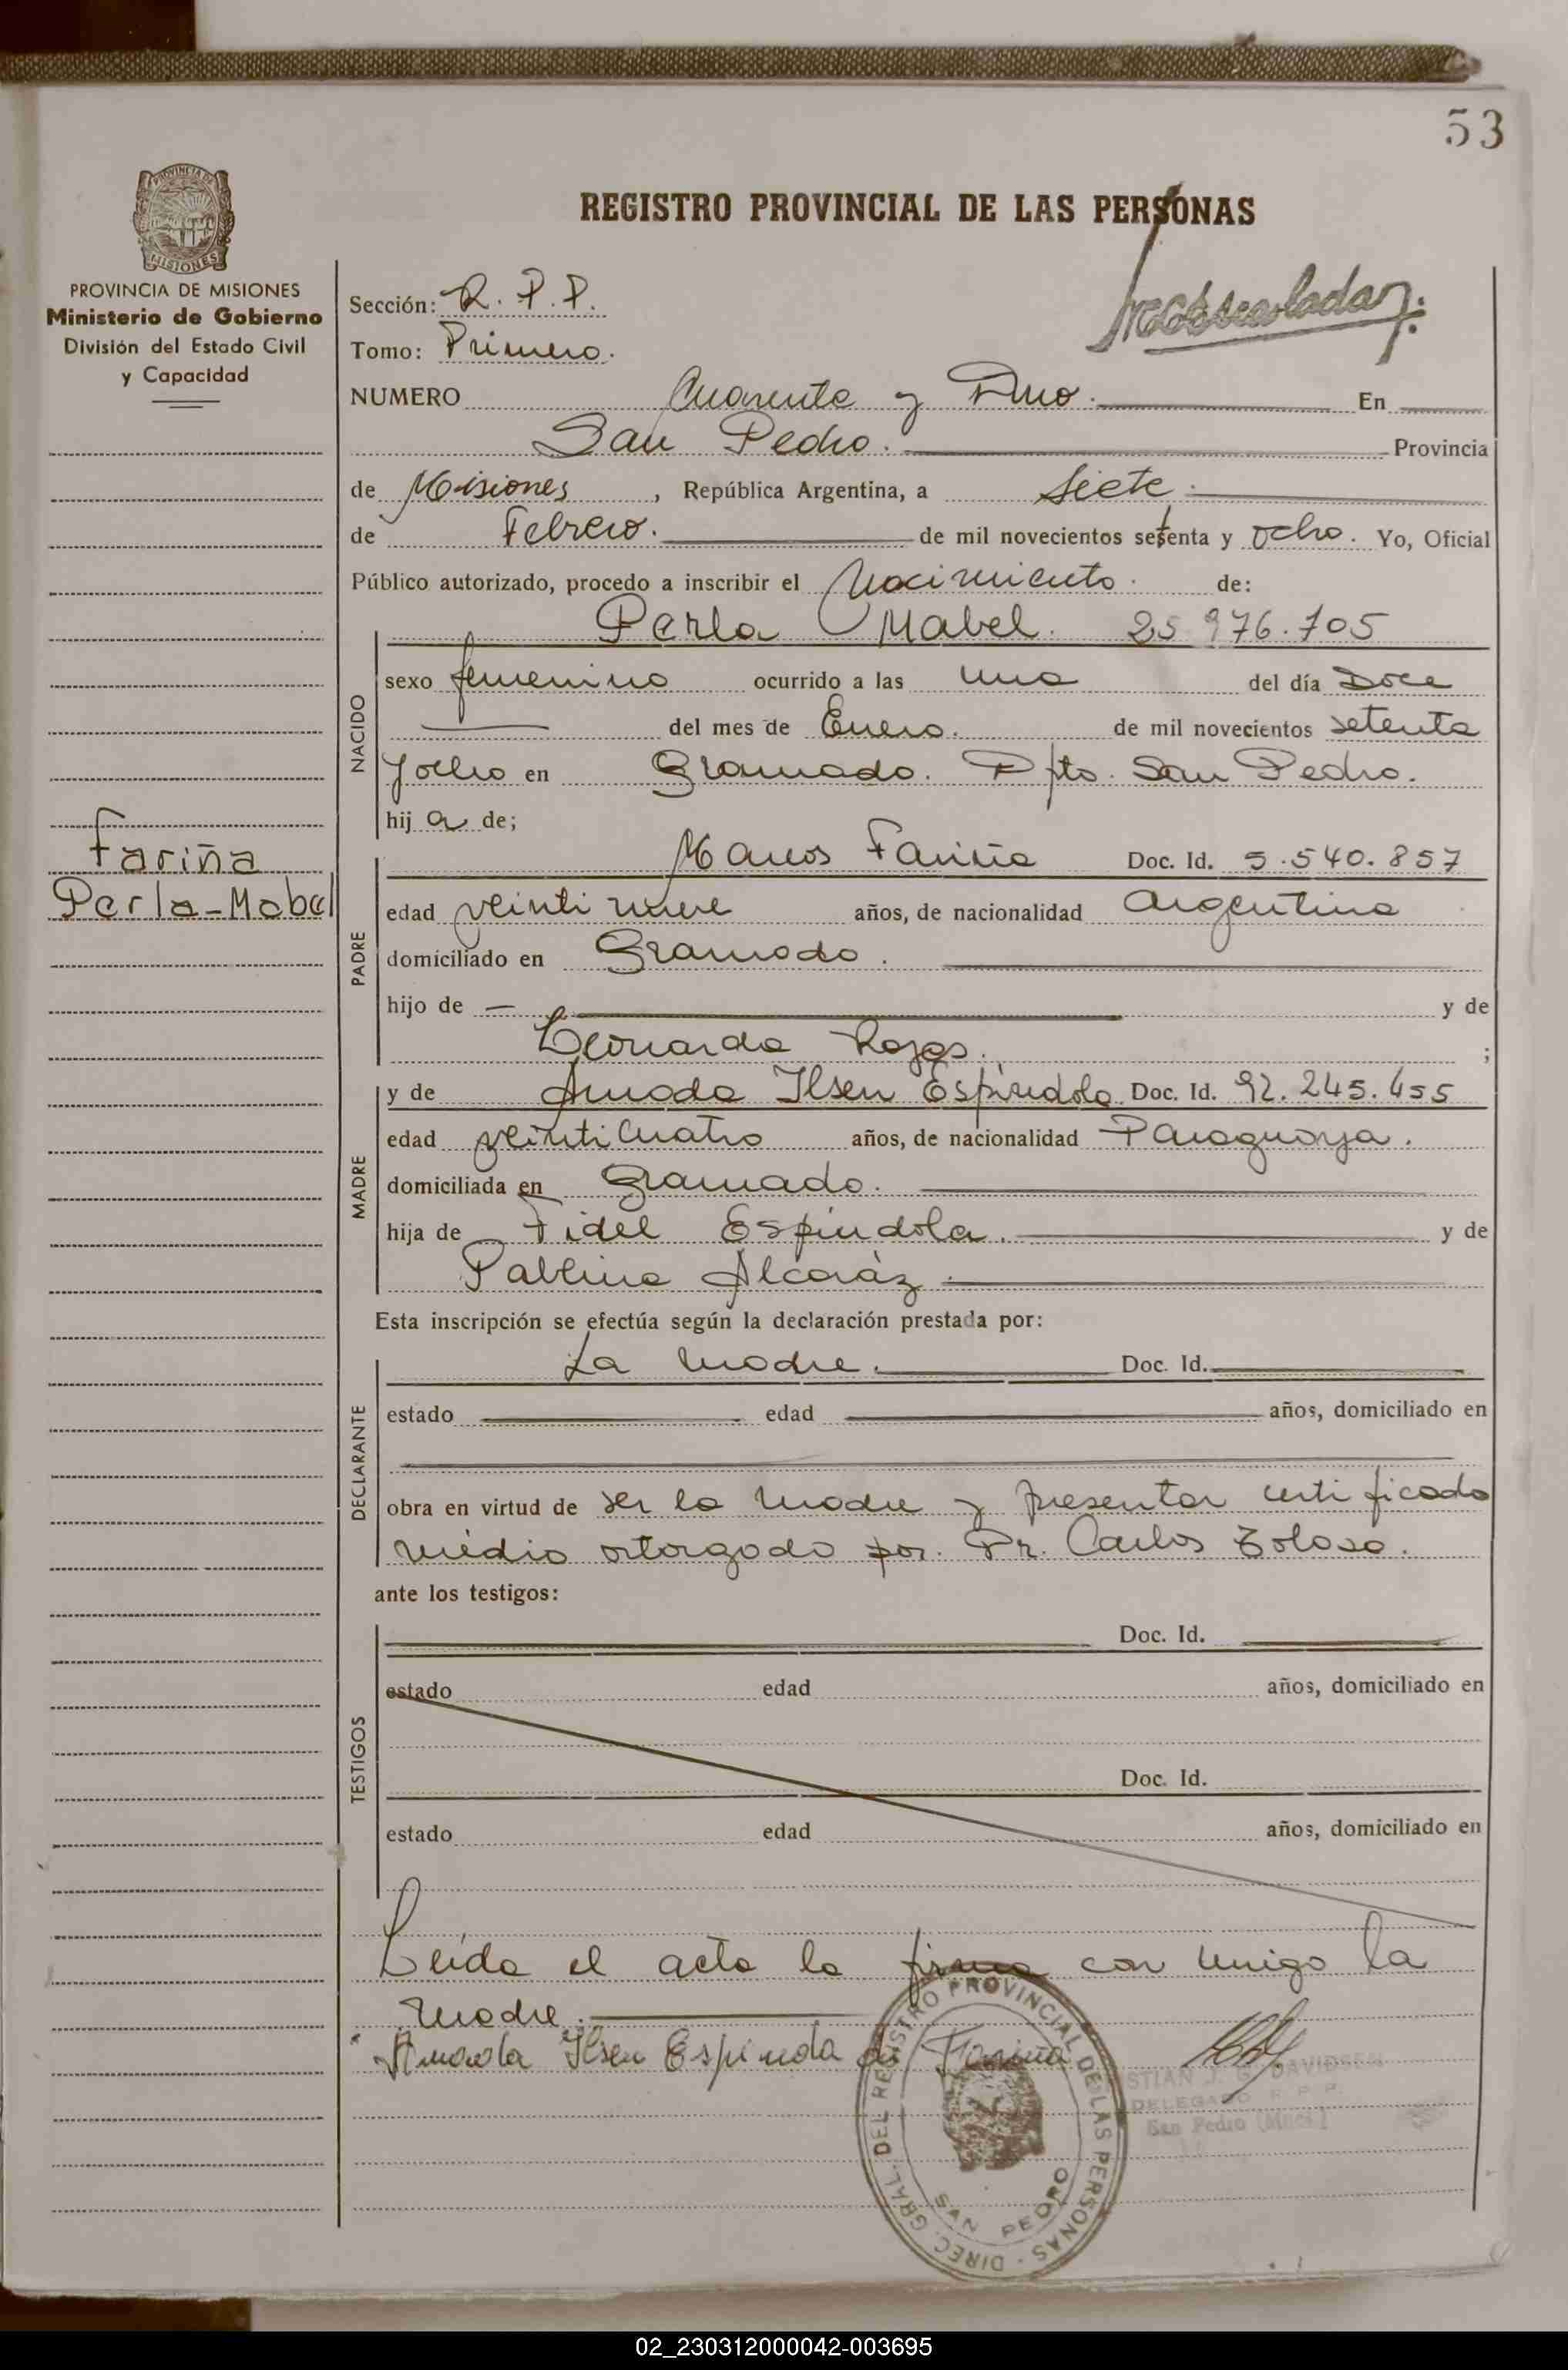 53
REGISTRO PROVINCIAL DE LAS PERSONAS
PROVINCIA DE MISIONES
Ministerio de Gobierno
División del Estado Civil
y Capacidad
Sección: R. P. P.
Tomo: Primero.
NUMERO Cuarenta y Dno. En
San Pedro. Provincia
de Misiones, República Argentina, a Siete.
de Febrero. de mil novecientos setenta y ocho. Yo, Oficial
Público autorizado, procedo a inscribir el Nacimiento. de:
Perla Mabel. 25 976.705
NACIDO
sexo femenino ocurrido a las una del día Doce
del mes de Enero. de mil novecientos setenta
y ocho en Gramado. Dpto. San Pedro.
hij a de;
Fariña
Perla-Mabel
PADRE
Marcos Fariña Doc. Id. 5.540.857
edad veinti nueve años, de nacionalidad Argentina
domiciliado en Gramado.
hijo de — y de
Leonarda Rojas. ;
MADRE
y de Amada Ilsen Espíndola Doc. Id. 92.245.455
edad veinti Cuatro años, de nacionalidad Paraguaya.
domiciliada en Gramado.
hija de Fidel Espíndola. y de
Pablina Alcaráz.
Esta inscripción se efectúa según la declaración prestada por:
DECLARANTE
La Madre. Doc. Id.
estado edad años, domiciliado en
obra en virtud de ser la madre y presentar certificado
médio otorgado por. Dr. Carlos Tolosa.
ante los testigos:
TESTIGOS
Doc. Id.
estado edad años, domiciliado en
Doc. Id.
estado edad años, domiciliado en
Leída el acta la firma con migo la
madre.
Amada Ilsen Espinda de Fariña
DIREC. GRAL. DEL REGISTRO PROVINCIAL DE LAS PERSONAS
SAN PEDRO
STIAN J. G. DAVIDSEN
DELEGADO R. P. P.
San Pedro (Mnes.)
02_230312000042-003695